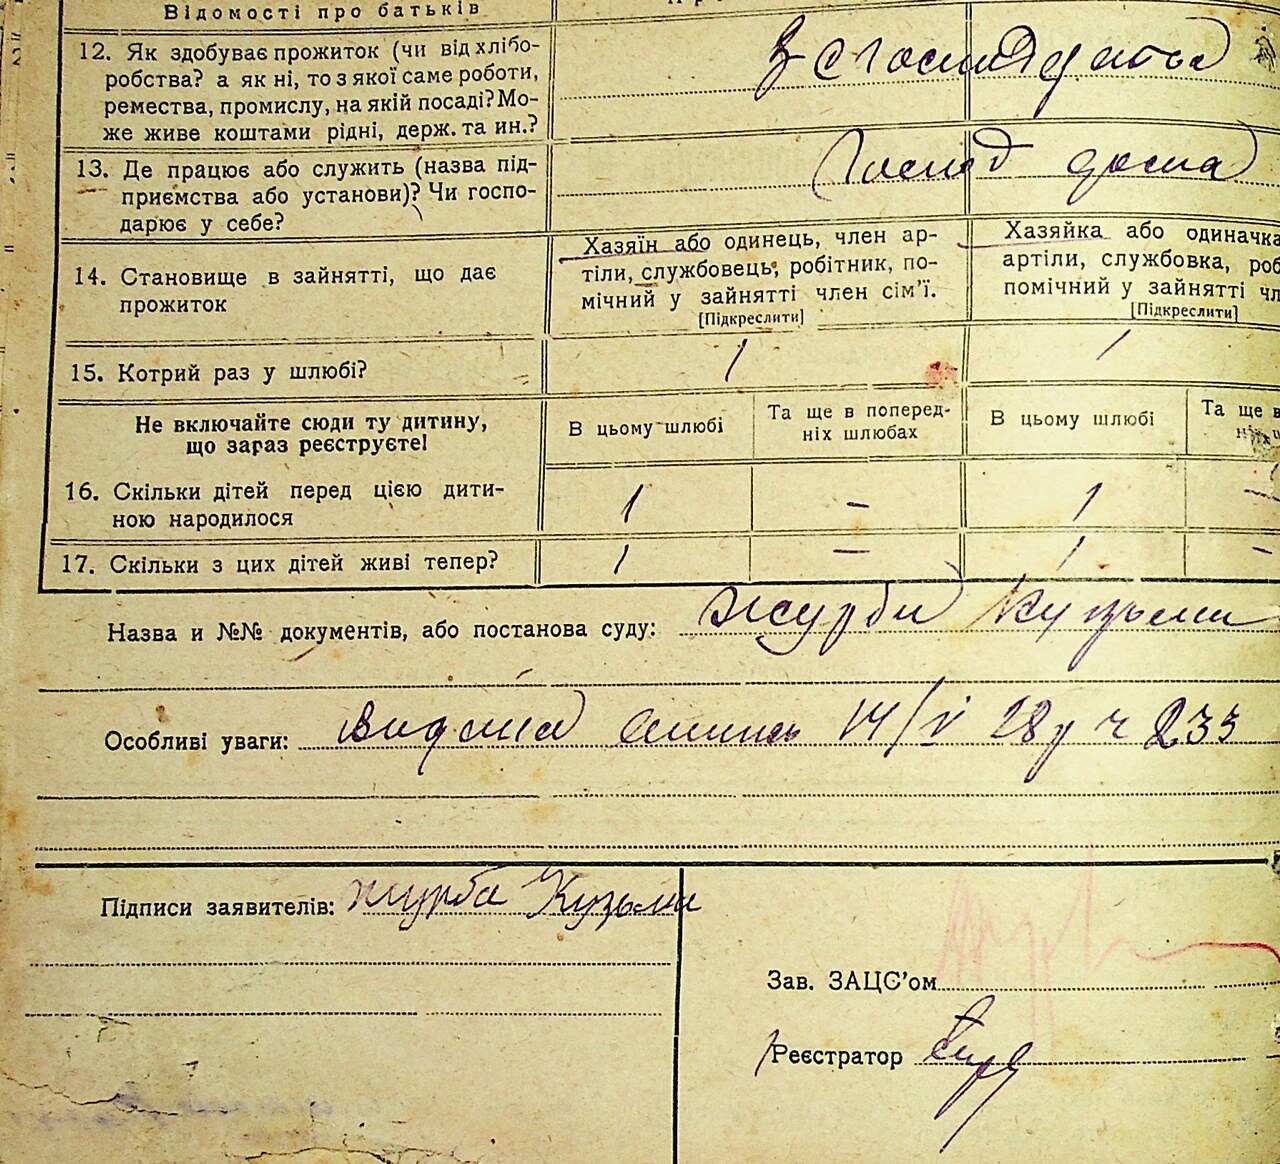 Відомості про батьків
12. Як здобуває прожиток (чи від хлібо-
робства? а як ні, то з якої саме роботи,
ремества, промислу, на якій посаді? Мо-
же живе коштами рідні, держ. та ин.?
13. Де працює або служить (назва під-
приємства або установи)? Чи госпо-
дарює у себе?
Господ дома
14. Становище в зайнятті, що дає
прожиток
Хазяїн або одинець, член ар-
тіли, службовець, робітник, по-
мічний у зайнятті член сім'ї.
[Підкреслити]
Хазяйка або одиначка
артіли, службовка, роб
помічний у зайнятті чл
[Підкреслити]
15. Котрий раз у шлюбі?
1
1
Не включайте сюди ту дитину,
що зараз реєструєте!
В цьому шлюбі
Та ще в поперед-
ніх шлюбах
В цьому шлюбі
Та ще в
ніх ш
16. Скільки дітей перед цією дити-
ною народилося
1 – 1 –
17. Скільки з цих дітей живі тепер?
1 – 1 –
Назва и №№ документів, або постанова суду: Журби Кузьми
Особливі уваги: 14/V 28 р ч 233
Підписи заявителів: Журба Кузьма
Зав. ЗАЦС'ом
Реєстратор